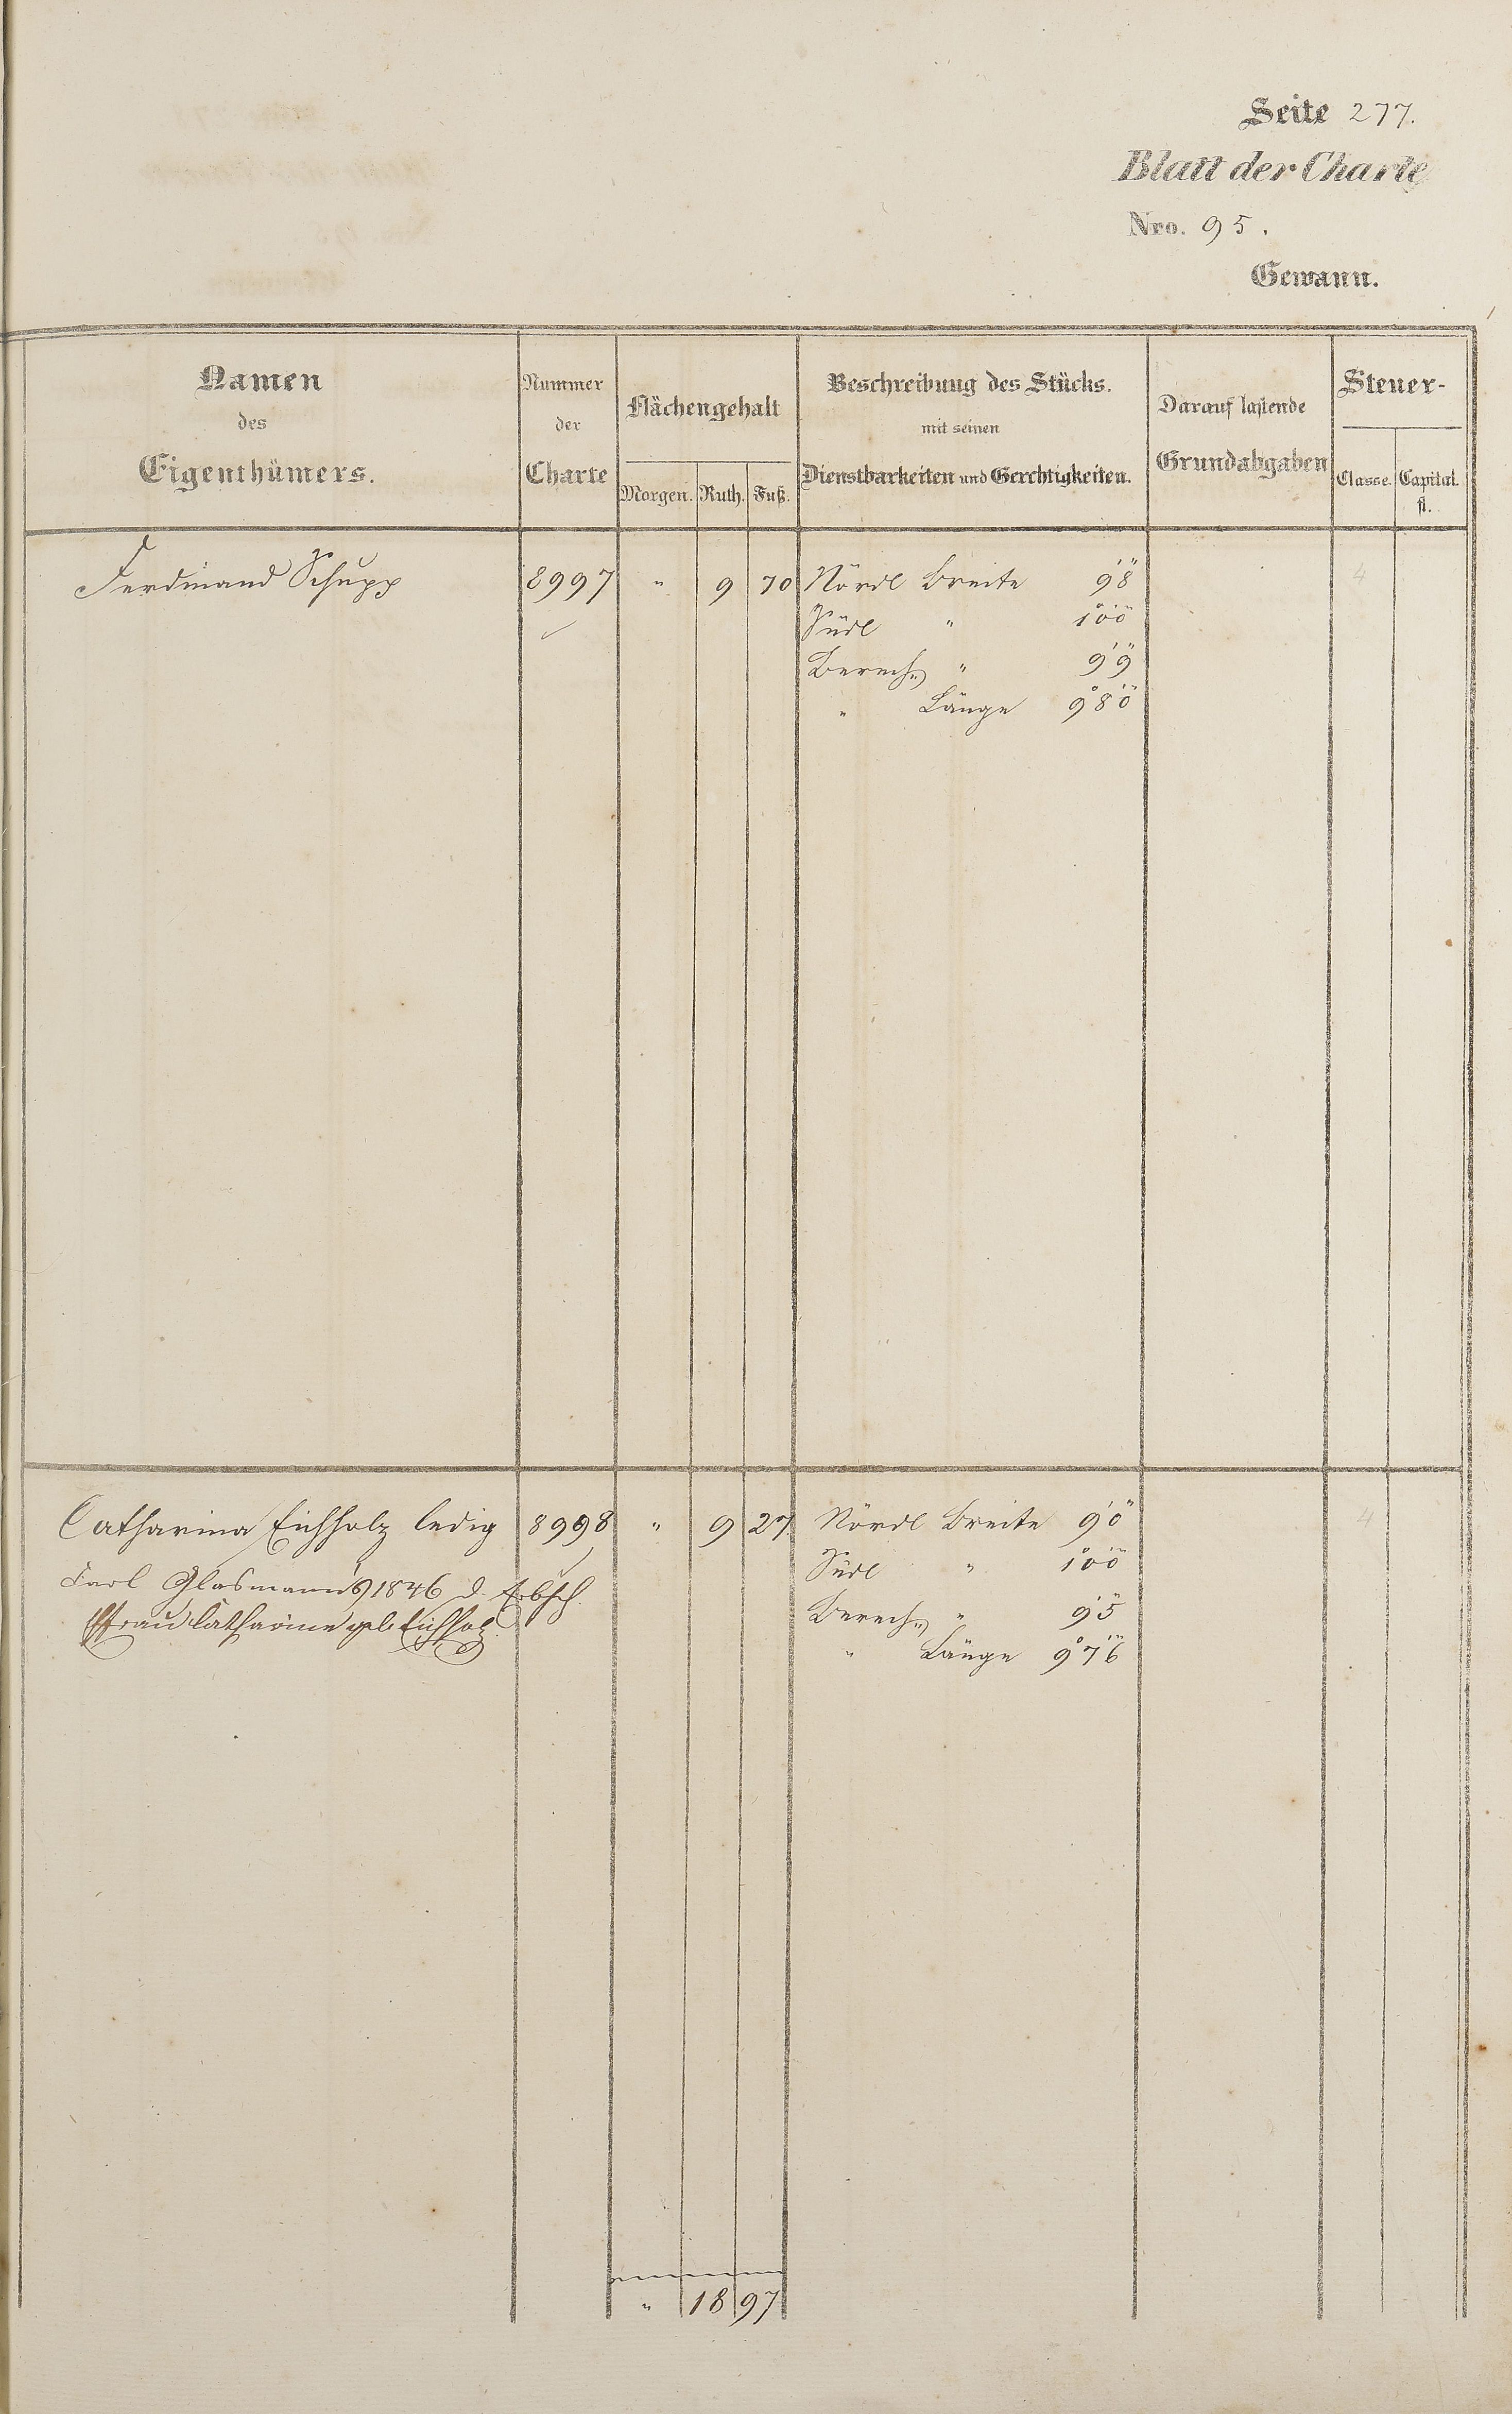 Seite 277.
Blatt der Charte
Nro. 95.
Gewann.
Namen des Eigenthümers.
Nummer der Charte
Flächengehalt
Morgen. Ruth. Fuß.
Beschreibung des Stücks.
mit seinen
Dienstbarkeiten und Gerechtigkeiten.
Darauf lastende
Grundabgaben
Steuer-
Classe. Capital.
fl.
Ferdinand Schupp 8997 " 9 70 Nördl Breite 9'8" 4
Südl " 1°0'0"
Berech. " 9'9"
" Länge 9°8'0"
Catharina Eichholz ledig 8998 " 9 27 Nördl Breite 9'0" 4
Südl " 1°0'0"
Carl Glasmann's 1846 d. Erbsch.
Berech. " 9'5"
Ehfrau Catharine geb. Eichholz
" Länge 9°7'6"
" 18 97